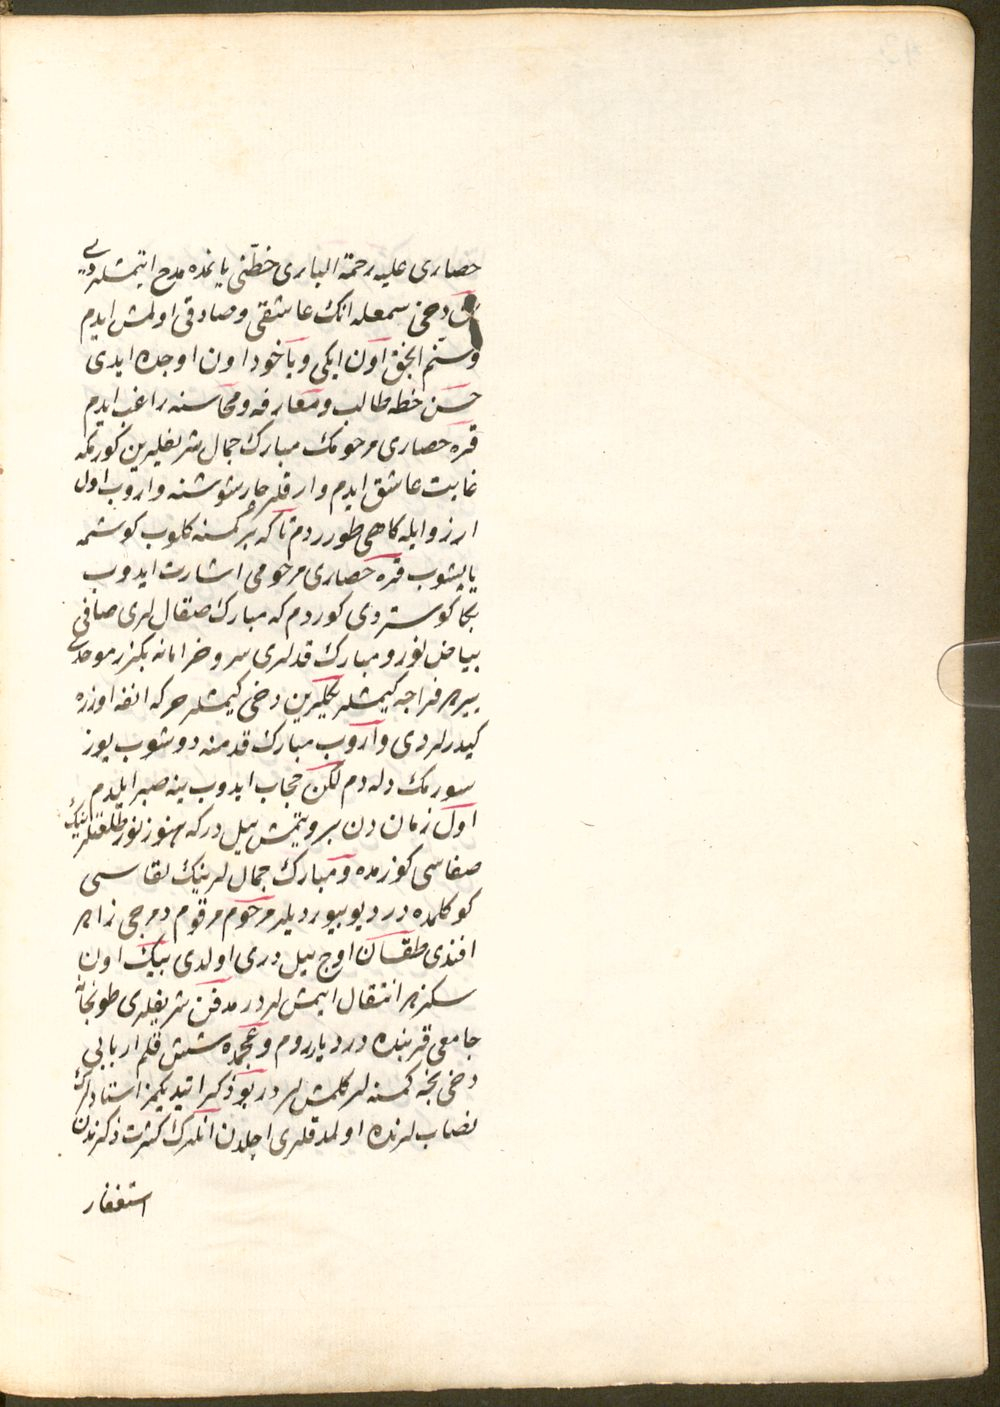 حصاری علیه رحمة الباری خطنی یانمده مدح ایتمشلردی
بن دخی سمعله انک عاشقی و صادقی اولمش ایدم
و سنم انجق اون ایکی و یاخود اون اوجده ایدی
حسن خطه طالب و معارفه و محاسنه راغب ایدم
قره حصاری مرحومک مبارک جمال شریفلرین کورمکه
غایت عاشق ایدم وارقلر چارشوسنه واروب اول
ارزو ایله کاهی طوررдم تا که بر کمسنه کلوب کوشمه
یاپشوب قره حصاری مرحومی اشارت ایدوب
بکا کوستردی کوردم که مبارک صقال لری صافی
بیاض نور و مبارک قدلری سرو خرامانه بکزر موحدی
بیر فراجه کیمشلر یکلرین دخی کیمشلر حرکه انفه اوزره
کیدرلردی واروب مبارک قدمنه دوشوب یوز
سورمک دله دم لکن حجاب ایدوب ینه صبر ایلدم
اول زمان دن برو یتمش ییل در که هنوز نور طلعتلرینک
صفاسی کوزمده و مبارک جمال لرینک لقاسی
کوکلمده در دیو بیوردیلر مرحوم مرقوم دمرجی زاده
افندی طقسان اوچ ییل دری اولدی بیک اون
سکزده انتقال ایمش لردر مدفن شریفلری طوبخانه
جامعی قربنده در دیار روم و عجمده شش قلم اربابی
دخی نجه کمسنه لر کلمش لردر بو ذکر اتیدیکمز استادلرک
نصاب لرنده اولمدقلری اجلدن انلرک کثرت ذکرندن
استغفار